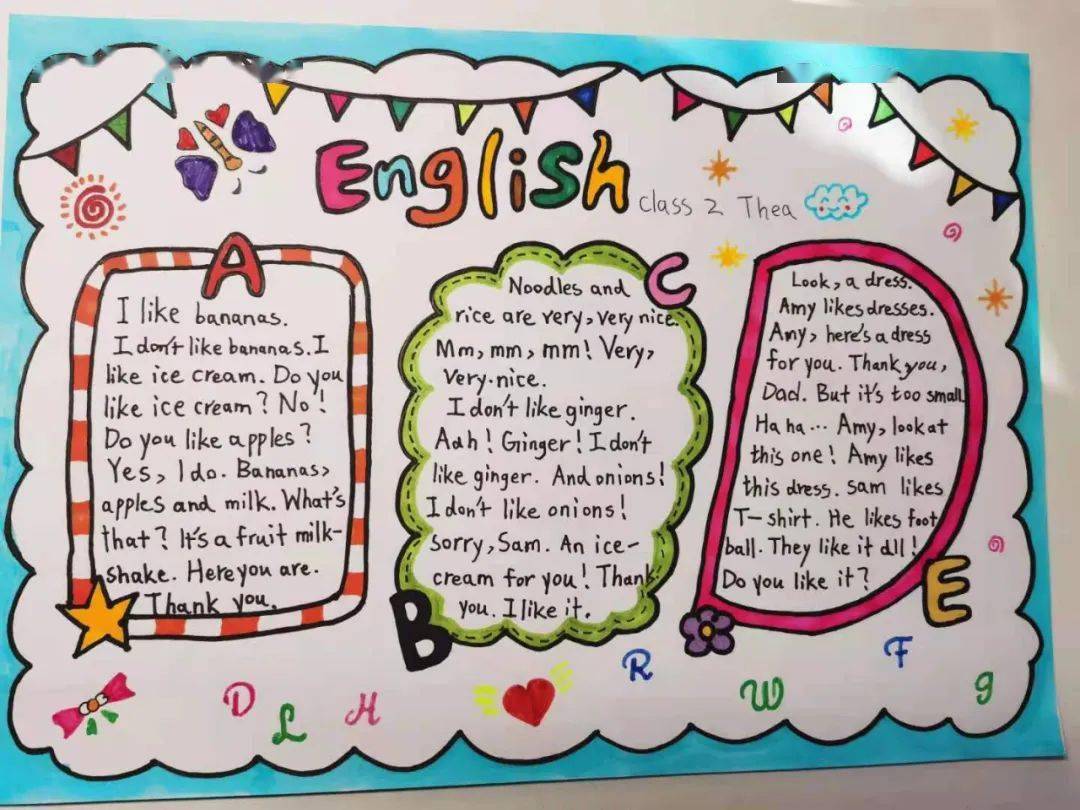 English
Class 2 Thea
A
I like bananas.
I don't like bananas. I
like ice cream. Do you
like ice cream? No!
Do you like apples?
Yes, I do. Bananas,
apples and milk. What's
that? It's a fruit milk-
shake. Here you are.
Thank you.
C
Noodles and
rice are very, very nice.
Mm, mm, mm! Very,
very. nice.
I don't like ginger.
Aah! Ginger! I don't
like ginger. And onions!
I don't like onions!
sorry, Sam. An ice-
cream for you! Thank
you. I like it.
B
Look, a dress.
Amy likes dresses.
Amy, here's a dress
for you. Thank you,
Dad. But it's too small.
Ha ha... Amy, look at
this one! Amy likes
this dress. Sam likes
T-shirt. He likes foot
ball. They like it all!
Do you like it?
E
D L H R W F g